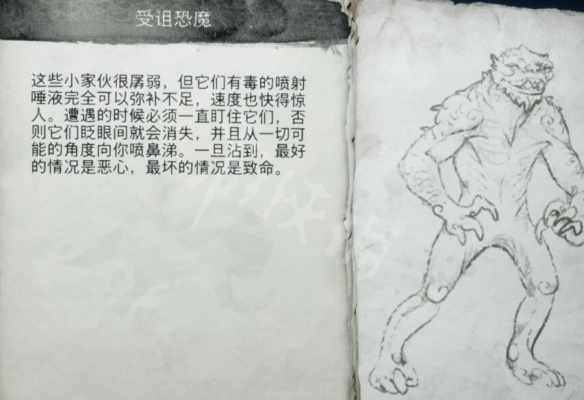 受诅恐魔
这些小家伙很孱弱，但它们有毒的喷射
唾液完全可以弥补不足，速度也快得惊
人。遭遇的时候必须一直盯住它们，否
则它们眨眼间就会消失，并且从一切可
能的角度向你喷鼻涕。一旦沾到，最好
的情况是恶心，最坏的情况是致命。